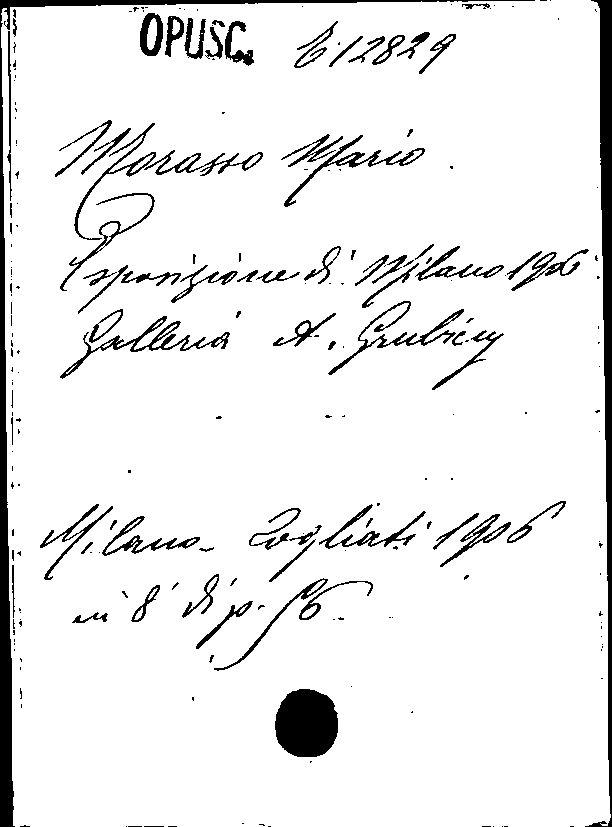 OPUSC. E 12829
Morasso Mario
Esposizione di Milano 1906
Galleria A. Grubicy
Milano - Cogliati 1906
in 8° di p.